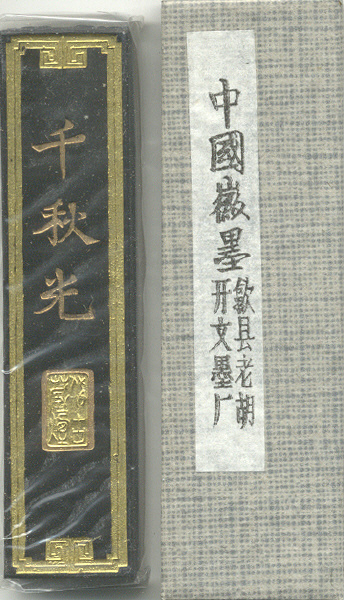 千秋光
中國徽墨
歙县老胡
开文墨厂